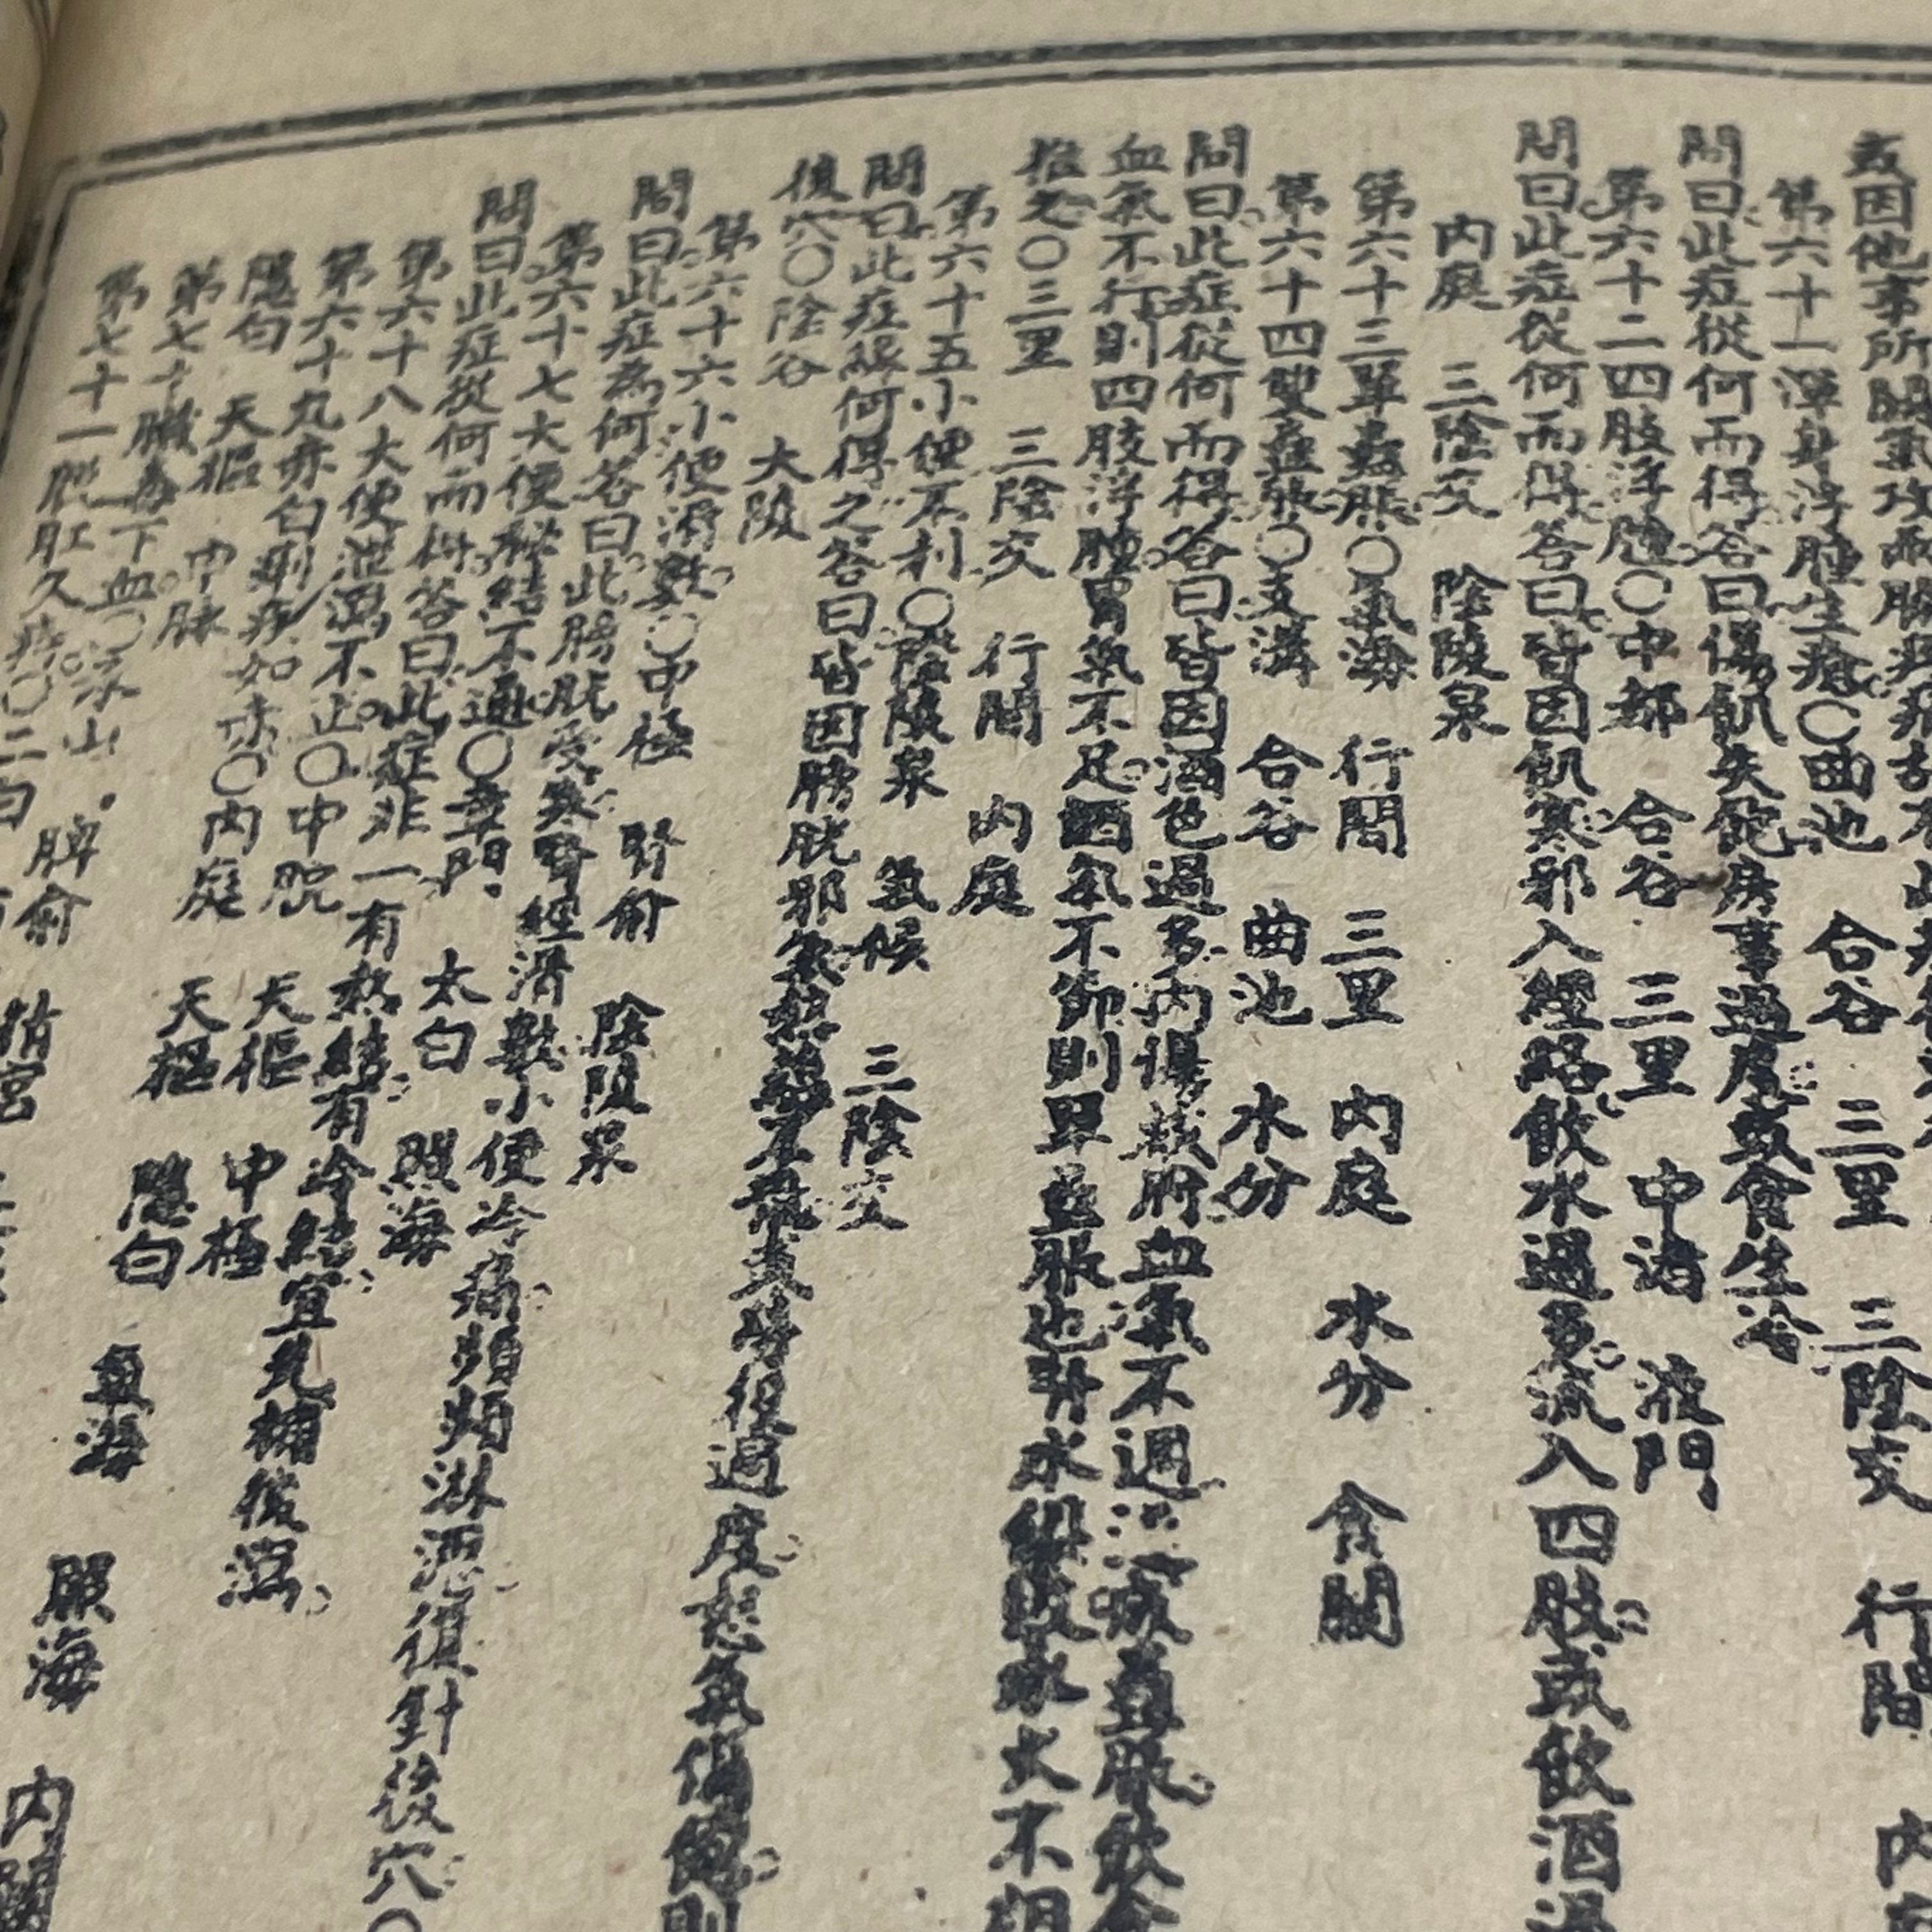 或因他事所關氣攻兩脇疼痛故
第六十一渾身浮腫生瘡〇曲池 合谷 三里 三陰交 行間 內
問曰此症從何而得答曰傷飢失飽房事過度或食生冷
第六十二四肢浮腫〇中都 合谷 三里 中渚 液門
問曰此症從何而得答曰皆因飢寒邪入經絡飲水過多流入四肢或飲酒過
內庭 三陰交 陰陵泉
第六十三單蠱脹〇氣海 行間 三里 內庭 水分 食關
第六十四雙蠱脹〇支溝 合谷 曲池 水分
問曰此症從何而得答曰皆因酒色過多內傷臟腑血氣不通遂成蠱脹飲食
血氣不行則四肢浮腫胃氣不足酒氣不節則單蠱脹也腎水俱敗水火不相
推之〇三里 三陰交 行間 內庭
第六十五小便不利〇陰陵泉 氣候 三陰交
問曰此症緣何得之答曰皆因膀胱邪氣熱氣不散或勞役過度怒氣傷胞則
復穴〇陰谷 大陵
第六十六小便滑數〇中極 腎俞 陰陵泉
問曰此症為何答曰此膀胱受寒腎經滑數小便冷痛頻頻淋瀝復針後穴〇
第六十七大便秘結不通〇章門 太白 照海
問曰此症從何而得答曰此症非一有熱結有冷結宜先補後瀉
第六十八大便泄瀉不止〇中脘 天樞 中極
第六十九赤白痢疾如赤〇內庭 天樞 隱白 氣海 照海 內關
隱白 天樞 中脉
第七十臟毒下血〇承山 脾俞 精宮
第七十一脫肛久痔〇二白